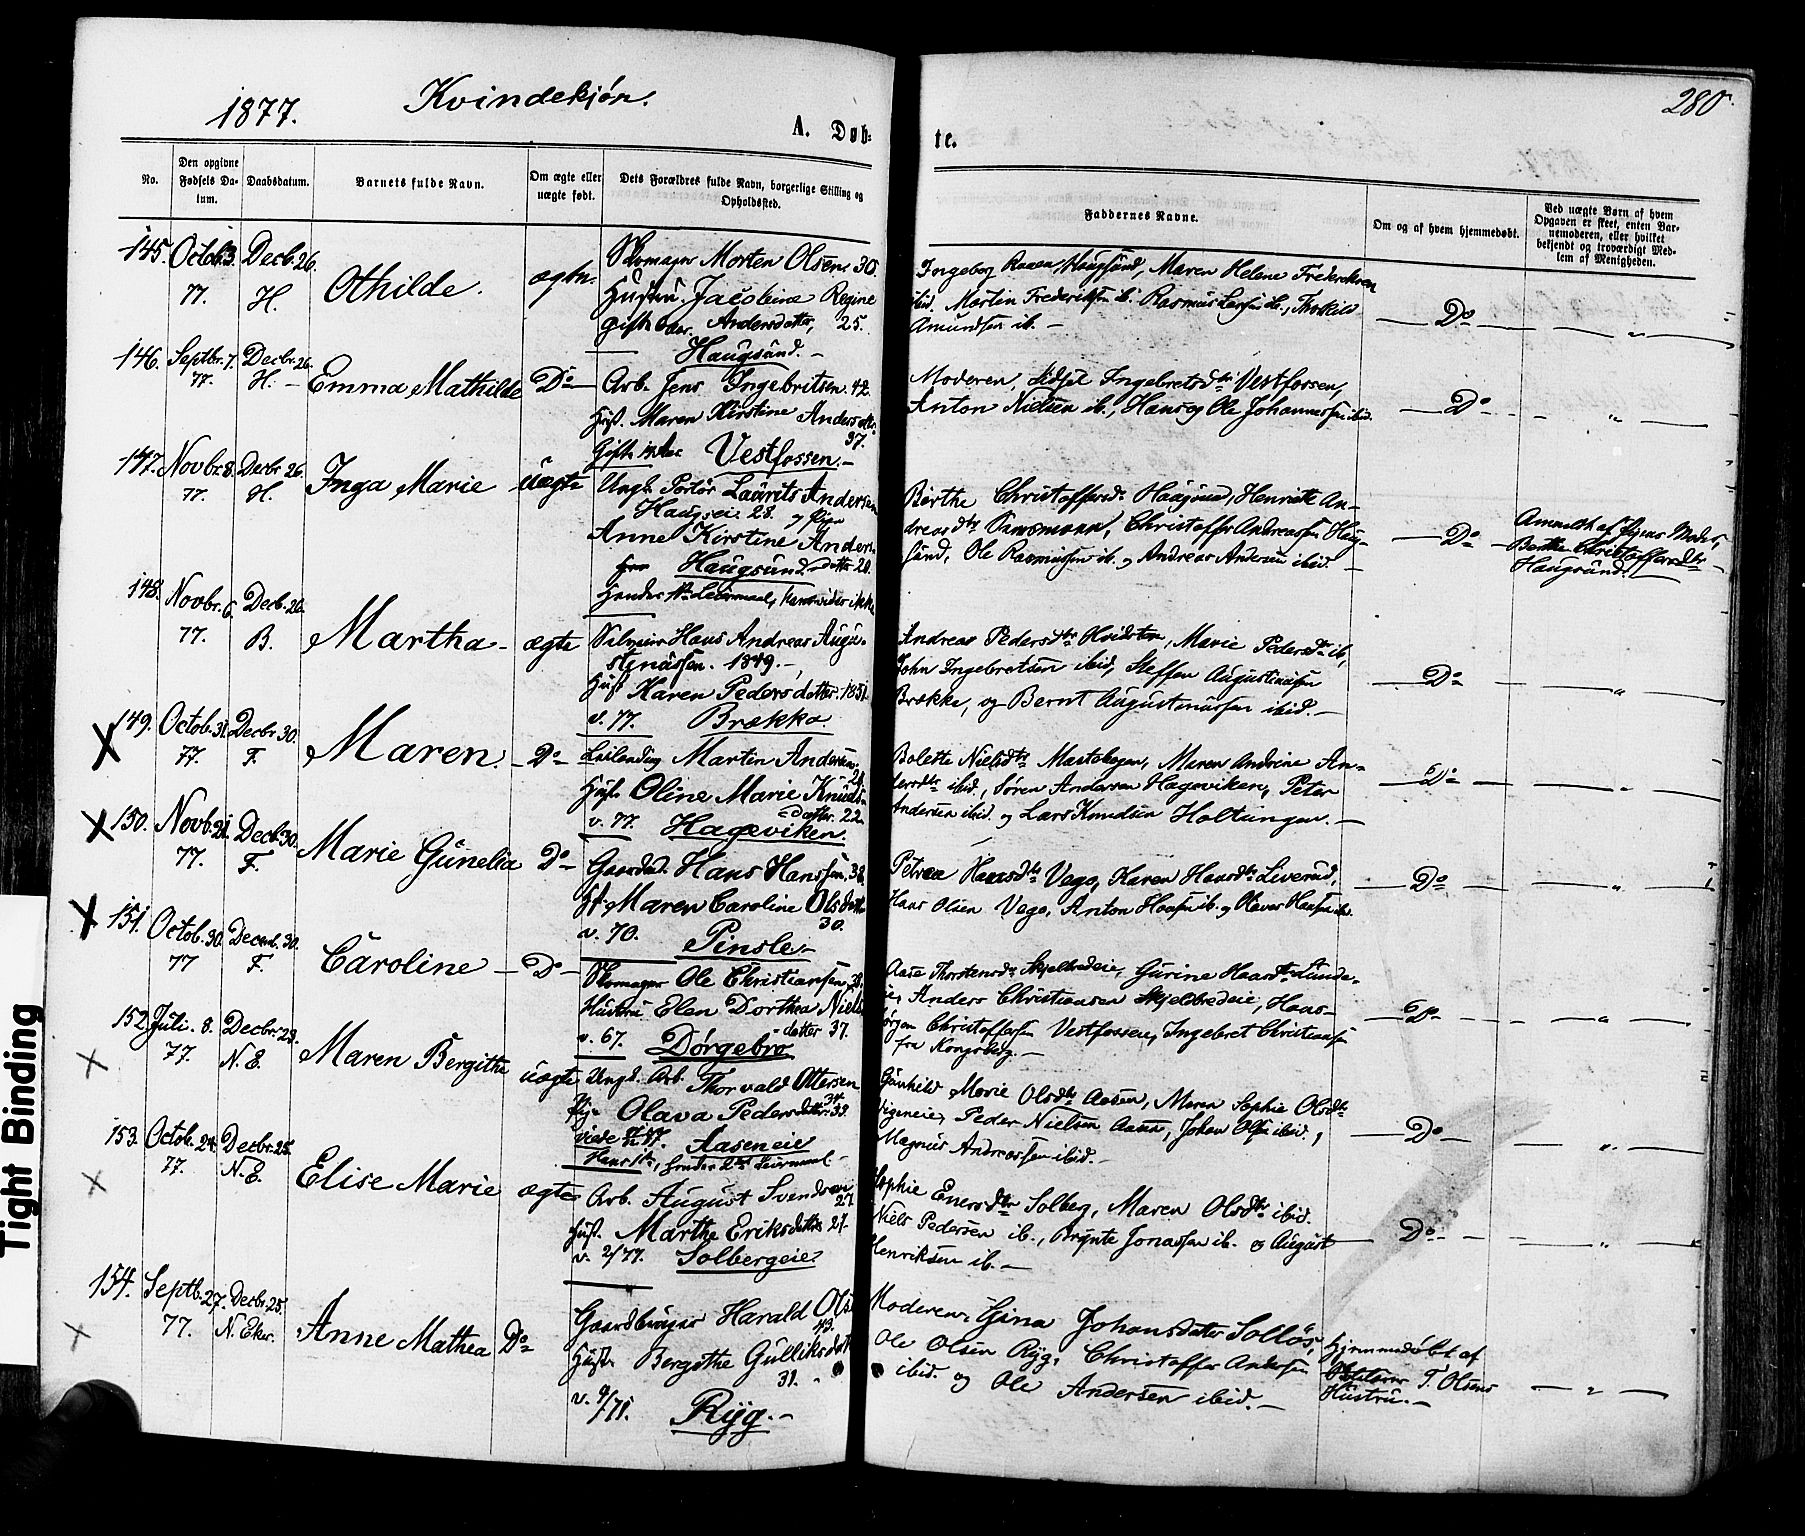 1877.
Kvindekjøn.
280.
A. Døb-
te.
No.
Den opgivne Fødsels Da-
tum.
Daabsdatum.
Barnets fulde Navn.
Om ægte eller
uægte født.
Dets Forældres fulde Navn, borgerlige Stilling og
Opholdsted.
Faddernes Navne.
Om og af hvem hjemmedøbt.
Ved uægte Børn af hvem
Opgaven er skeet, enten Bar-
nemoderen, eller hvilket
bekjendt og troværdigt Med-
lem af Menigheden.
145. Octob. 3. 77. Decb. 26. H.
Othilde.
ægte.
Skomager Morten Olsen 30.
Hustru. Jacobine Regine
Andersdatter, 25.
Haugsund.
Ingeborg Haugsund, Maren Helene Frederiksen
ibid. Martin Frederiksen ib. Rasmus Larsen ib., Thorkild
Amundsen ib. —
Do
146. Septbr. 7. 77. Decbr. 26. H. —
Emma Mathilde
Do
Arb. Jens Ingebritsen. 42.
Hust. Maren Kirstine Andersdtr.
37.
Vestfossen. —
Moderen, Sidsel Ingebretsdtr Vestfossen,
Anton Nielsen ib., Hans og Ole Johannessen ibid.
Do
147. Novbr. 8. 77. Decbr. 26. H.
Inga Marie
uægte
Ungk. Laurits Andersen
28. og Pige
Anne Kirstine Anders-
Haugsund. datter 20.
Berthe Christoffersdr. Haugsund, Henriette An-
dreasdtr Christoffer Andreassen Haug-
sund, Ole Rasmussen ib. og Andreas Andersen ibid. —
Do
Anmeldt af Pigens Moder,
Berthe Christoffersdtr
Haugsund.
148. Novbr. 6. 77. Decb. 26. B.
Martha
ægte
Hans Andreas Augu-
stinussen. 1849. —
Hust. Karen Pedersdatter. 1851.
v. 77. Brækka.
Andreas Pedersdtr Hvidsten, Marie Pedersdtr ib,
John Ingebretsen ibid, Steffen Augustinussen
Brække, og Bernt Augustinussen ibid. —
Do
149. Octob. 31. 77. Decbr. 30. F.
Maren.
Do
Martin Andersen.
Hust. Oline Marie Knuds-
datter. 22.
v. 77. Hageviken.
Bolette Nielsdtr Maren Andrine An-
dersdtr ibid., Søren Andersen Hageviken, Peter
Andersen ibid. og Lars Knudsen Holtungen. —
Do
150. Novb. 21. 77. Decb. 30. F.
Marie Gunelia
Do
Gaardbr. Hans Hanssen. 38.
H. Maren Caroline Olsdatter
30.
v. 70. Pinsle. —
Petrea Hansdtr Vego, Karen Hansdtr Liverud,
Hans Olsen Vego, Anton Hansen ib. og Oluves Hansen ib.
Do
151. Octob. 30. 77 Decemb. 30. F.
Caroline
Do
Skomager Ole Christiansen, 28.
Hustru Elen Dorthea Niels-
datter 37.
v. 67. Dørgebro
Aase Thorstensdr. Skjelbredeie, Gurine Hansdtr Lunde-
eie, Anders Christiansen Skjelbredeie, Hans-
Jørgen Christoffersen Vestfossen, Ingebret Christiansen
fra Kongsberg. —
Do
152. Juli. 8. 77. Decbr. 23. N. E.
Maren Bergithe
uægte
Ungk. Arb. Thorvald Ottersen
34
Pige Olava Pedersdatter. 39.
Aaseneie
Gunhild Marie Olsdtr Aasen, Maren Sophie Olsdtr
Vigeneie, Peder Nielsen Aasen, Johan Olsen ibid.,
Magnus Andreassen ibid. —
Do
153. Octob. 24. 77. Decbr. 25. N. E.
Elise Marie
ægte
Arb. August Svendsen
27.
Hust. Marthe Eriksdatter 27.
v. 2/77. Solbergeie.
Sophie Enersdtr Solberg, Maren Olsdtr ibid.
Niels Pedersen ib., Brynte Jonassen ib. og August
Henriksen ib. —
Do
154. Septb. 27. 77. Decbr. 25. N. Eker.
Anne Mathea
Do
Gaardbruger Harald Ols
43.
Hust. Bergithe Gulliksdatt
31.
v. 9/71. Ryg. —
Moderen, Gina Johansdatter Solløs,
Ole Olsen Ryg, Christoffer Andersen
ibid. og Ole Andersen ibid. —
Hjemmedøbt af
T. Olsens
Hustru. —
Tight Binding